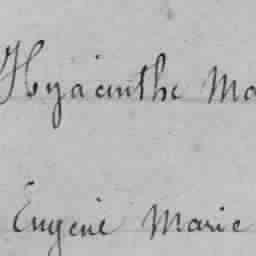 Hyacinthe Ma
Eugène Marie